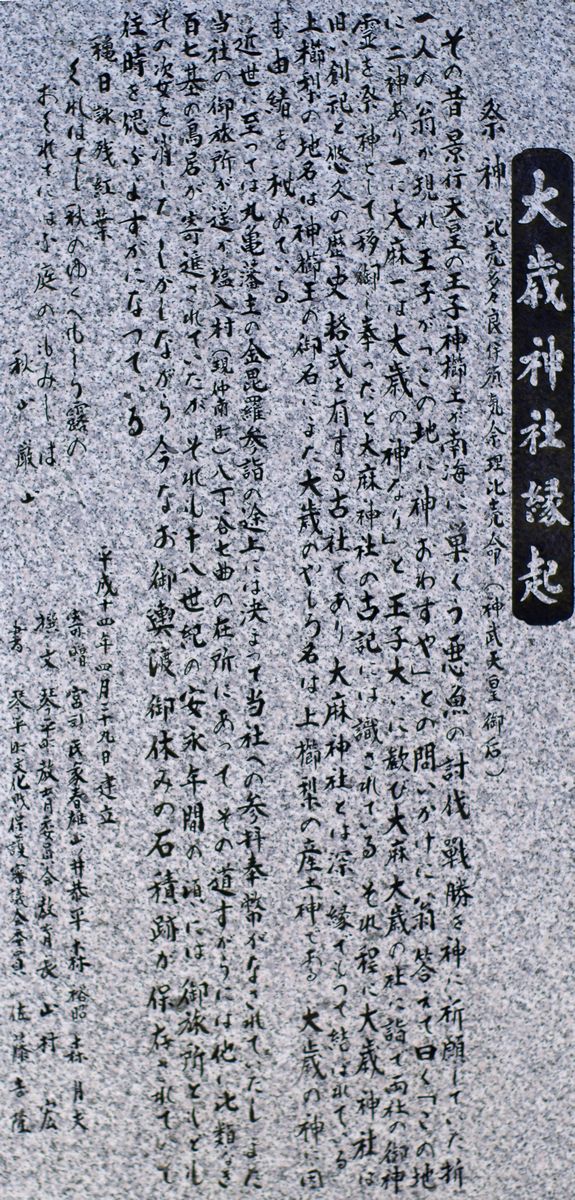 大歳神社縁起
祭神 比売多々良伊須気余理比売命(神武天皇御后)
その昔景行天皇の王子神櫛王が南海に巣くう悪魚の討伐戦勝を神に祈願していた折
一人の翁が現れ王子が「この地に神おわすや」との問いかけに翁答えて曰く「この地
に二神あり一に大麻一は大歳の神なり」と王子大いに歓び大麻大歳の社に詣で両社の御神
霊を祭神として移御し奉ったと大麻神社の古記には識されている それ程に大歳神社は
旧い創祀と悠久の歴史格式を有する古社であり大麻神社とは深い縁でもって結ばれている
上櫛梨の地名は神櫛王の御名にまた大歳のやしろ名は上櫛梨の産土神である 大歳の神に因
む由緒を秘めている
近世に至っては丸亀藩主の金毘羅参詣の途上には決まって当社への参拝奉幣がなされていたしまた
当社の御旅所が遥か塩入村(現仲南町)八丁谷七曲の在所にあってその道すがらには他に比類なき
百七基の鳥居が寄進されていたが それれも十八世紀の安永年間の頃には御旅所ともども
その次女を消した しかしながら今なお御輿渡御休みの石積跡が保存されていて
往時を偲ぶよすがになっている
穐日詠残紅葉
くれはてし秋のゆくへもしら露の
おくれてにほふ庭のもみちは
秋山 巌山
平成十四年四月二十九日建立
寄贈 宮司 氏家春雄 山井恭平 森裕昭 森月夫
撰文 琴平町教育委員会教育長 山村 宏
書 琴平町文化財保護審議会委員 佐藤孝隆